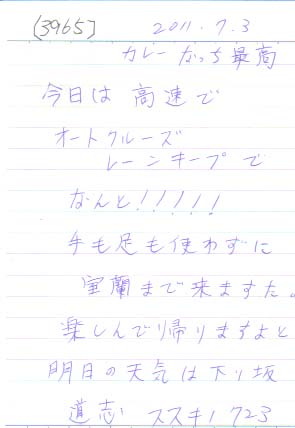 (3965) 2011.7.3
カレーなっち最高
今日は高速で
オートクルーズ
レーンキープで
なんと!!!!!
手も足も使わずに
室蘭まで来ますた。
楽しんで帰りますよと
明日の天気は下り坂
道志 ススキノ723